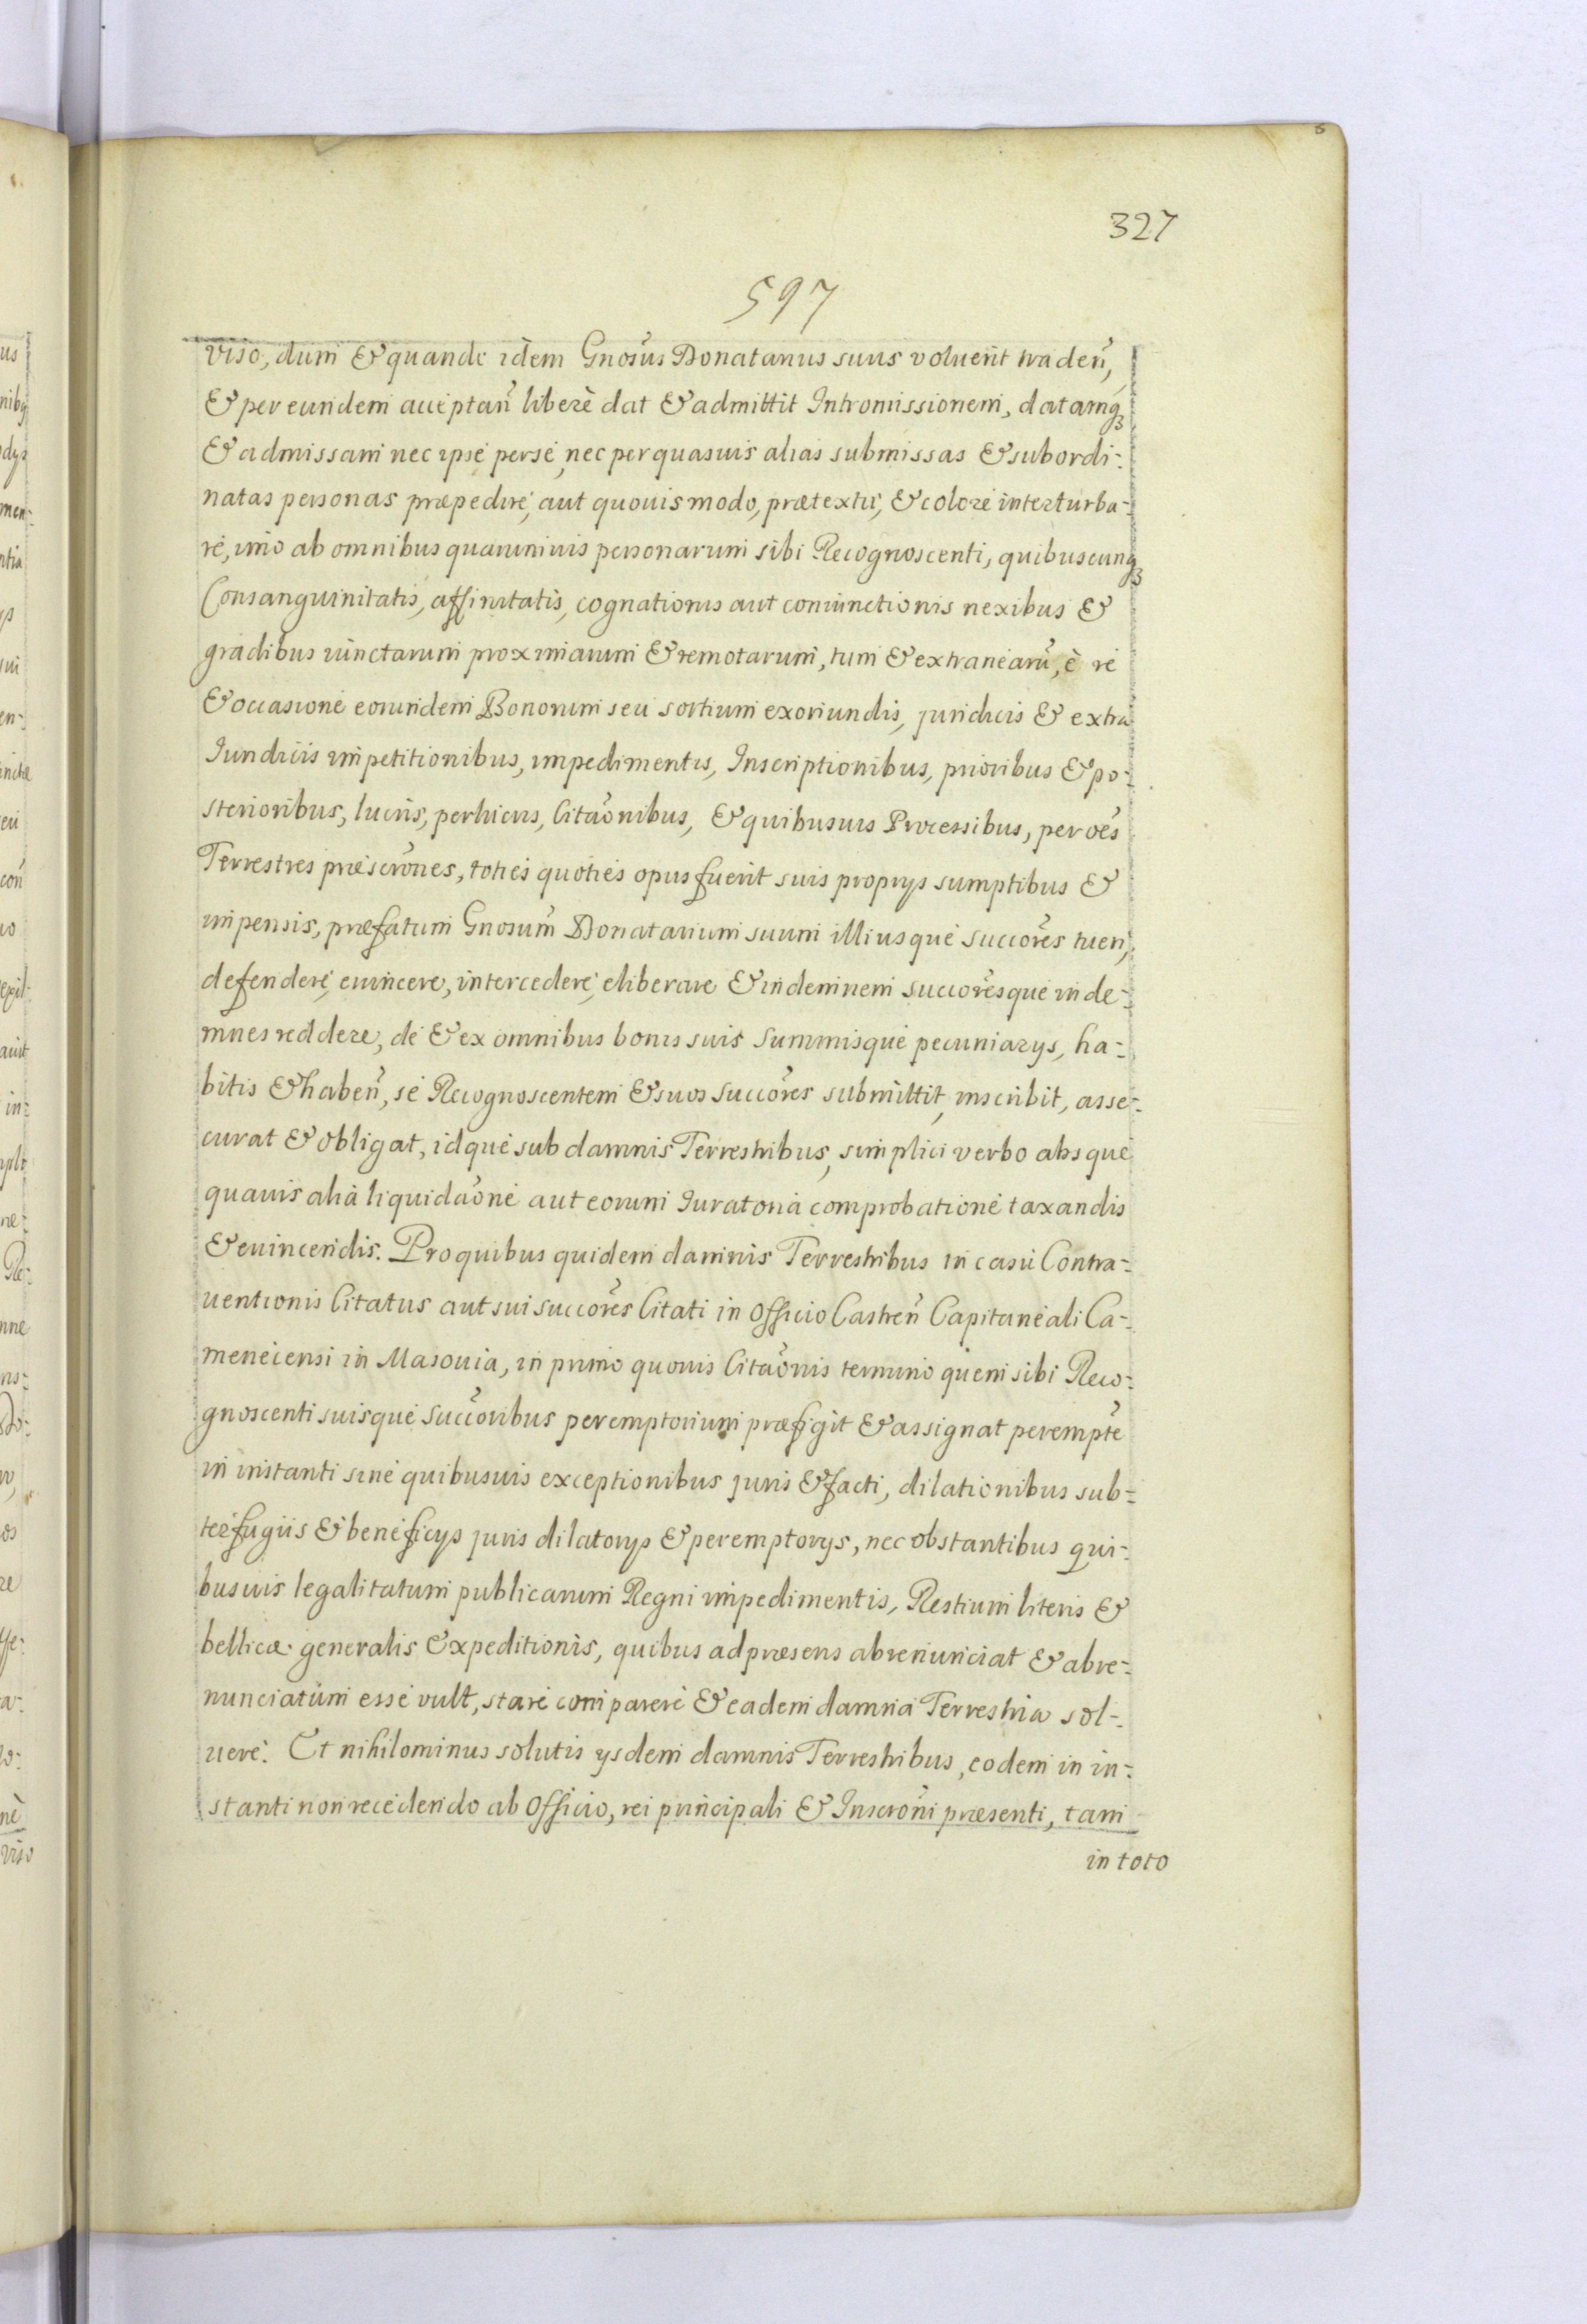 327
597
viso, dum & quando idem Gnosus Donatarius suus voluerit traden̄,
& per eundem acceptan̄ liberè dat & admittit Intromissionem, datamq́ꝫ
& admissam nec ipse per se, nec per quasuis alias submissas & subordi-
natas personas præpedire, aut quouis modo, prætextu, & colore interturba-
re, imò ab omnibus quarumuis personarum sibi Recognoscenti, quibuscunqꝫ
Consanguinitatis, affinitatis, cognationis aut coniunctionis nexibus &
gradibus iunctarum proximarum & remotarum, tum & extranearū, è re
& occasione eorundem Bonorum seu sortium exoriundis, juridicis & extra
Iuridicis impetitionibus, impedimentis, Inscriptionibus, prioribus & po-
sterioribus, lucris, perlucris, Citaōnibus, & quibusuis Processibus, per oēs
Terrestres præscrōnes, toties quoties opus fuerit suis proprys sumptibus &
impensis, præfatum Gnosum Donatarium suum illiusque succōres tueri,
defendere, euincere, intercedere, eliberare & indemnem succōresque inde-
mnes reddere, de & ex omnibus bonis suis summisque pecuniarys, ha-
bitis & haben̄, se Recognoscentem & suos succōres submittit, inscribit, asse-
curat & obligat, idque sub damnis Terrestribus, simplici verbo absque
quauis aliâ liquidaōne aut eorum Iuratoria comprobatione taxandis
& euincendis. Pro quibus quidem damnis Terrestribus in casu Contra-
uentionis Citatus aut sui succōres Citati in Officio Castren̄ Capitaneali Ca-
menecensi in Masouia, in primo quouis Citaōnis termino quem sibi Reco-
gnoscenti suisque succōribus peremptorium præfigit & assignat perempte
in instanti sine quibusuis exceptionibus juris & facti, dilationibus sub-
terfugiis & beneficys juris dilatorys & peremptorys, nec obstantibus qui-
busuis legalitatum publicarum Regni impedimentis, Restium literis &
bellicæ generalis Expeditionis, quibus ad præsens abrenunciat & abre-
nunciatum esse vult, stare comparere & eadem damna Terrestria sol-
uere. Et nihilominus solutis ysdem damnis Terrestribus, eodem in in-
stanti non recedendo ab Officio, rei principali & Inscrōni præsenti, tam
in toto